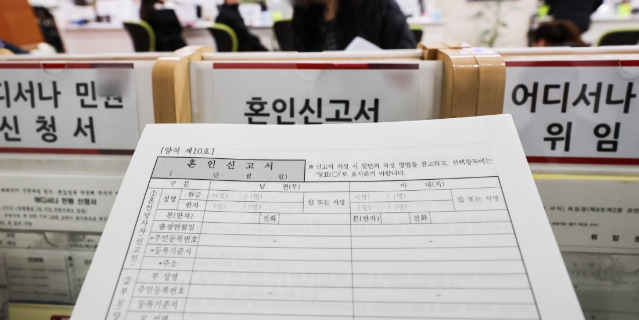 어디서나 민원
신청서
혼인신고서
어디서나
위임
[양식 제10호]
혼인신고서
( 년 월 일)
※ 신고서 작성 시 뒷면의 작성 방법을 참고하고, 선택항목에는
'영표(○)'로 표시하기 바랍니다.
구 분 남 편(부) 아 내(처)
①혼인당사자(신고인)
성명 한글 (성) / (명) ㊞ 또는 서명 (성) / (명) ㊞ 또는 서명
한자 (성) / (명) (성) / (명)
본(한자) 전화 본(한자) 전화
출생연월일
*주민등록번호 - -
*등록기준지
*주소
②부모
부 성명
주민등록번호 - -
등록기준지
모 성명